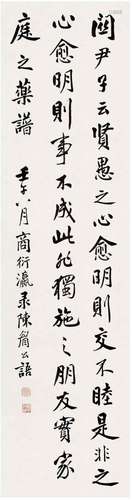 關尹子云賢愚之心愈明則交不睦是非之
心愈明則事不成此非獨施之朋友實家
庭之藥譜
壬午八月商衍瀛录陳眉公語